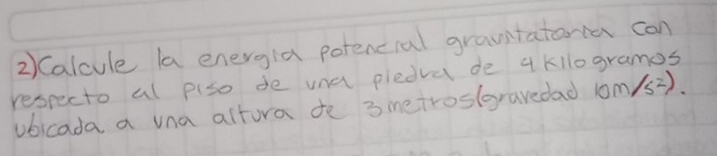 2) Calcule la energia potencial gravitatoria con
respecto al piso de una piedra de 4 kilogramos
ubicada a una altura de 3 metros (gravedad 10m/s²).